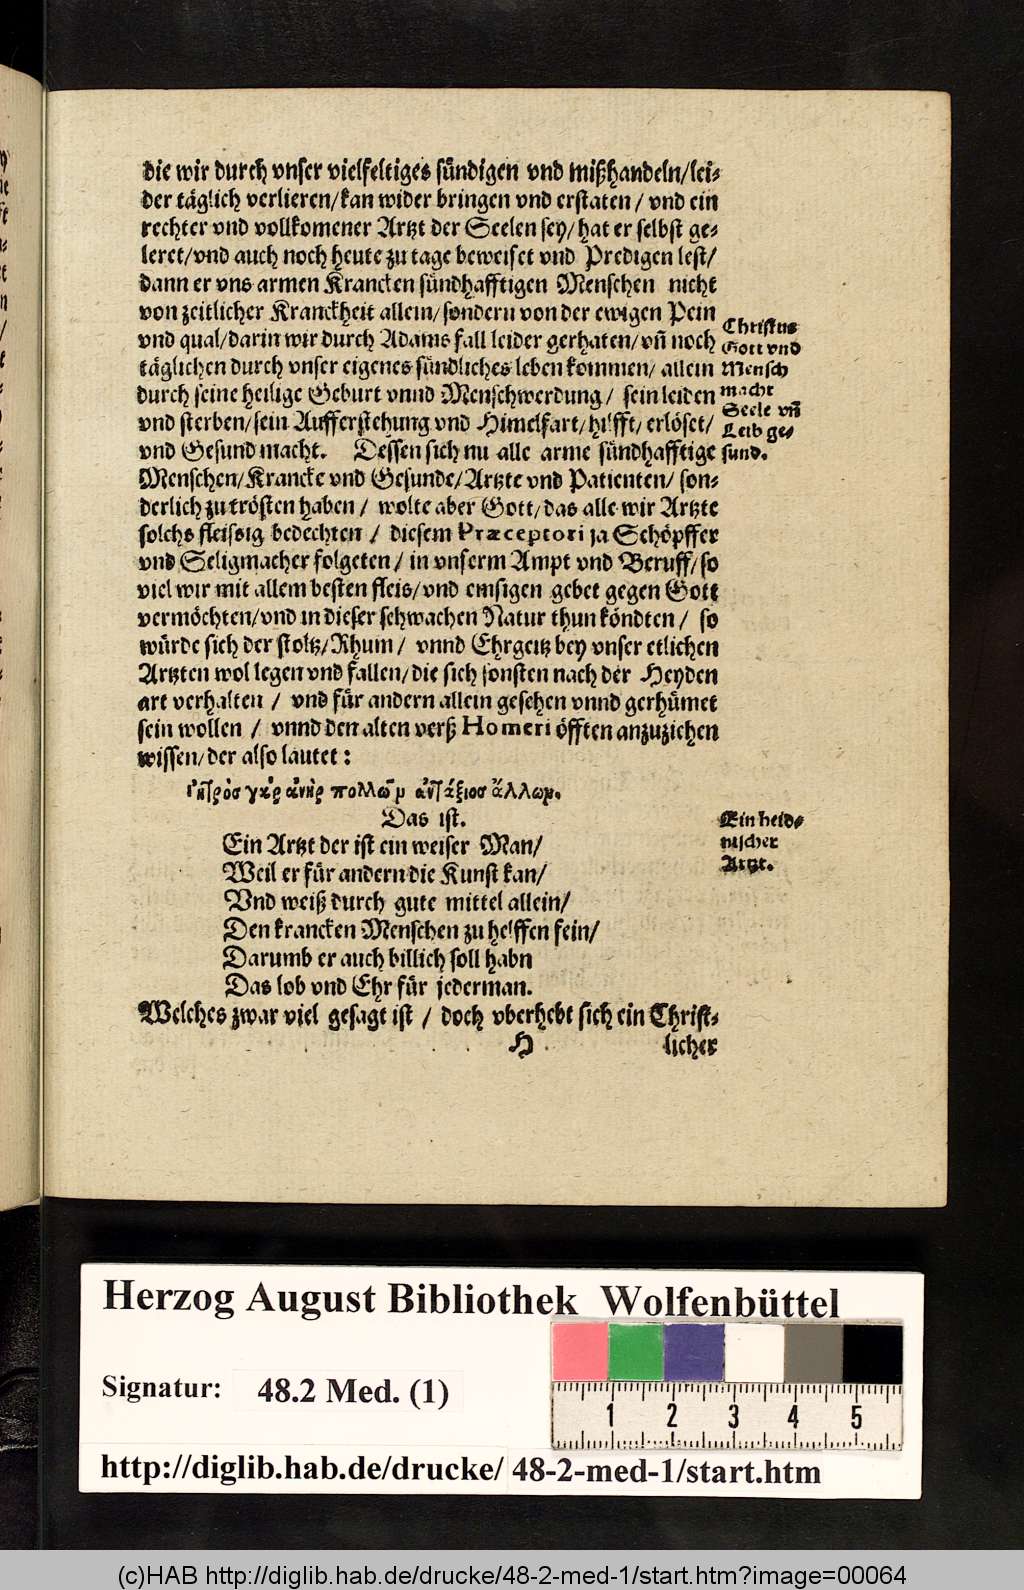 die wir durch vnser vielfeltiges sündigen vnd mißhandeln/lei-
der täglich verlieren/kan wider bringen vnd erstaten / vnd ein
rechter vnd vollkomener Artzt der Seelen sey/hat er selbst ge-
leret/vnd auch noch heute zu tage beweiset vnd Predigen lest/
dann er vns armen Krancken sündhafftigen Menschen nicht
von zeitlicher Kranckheit allein/sondern von der ewigen Pein
vnd qual/darin wir durch Adams fall leider gerhaten/vñ noch
täglichen durch vnser eigenes sündliches leben kommen/ allein
durch seine heilige Geburt vnnd Menschwerdung/ sein leiden
vnd sterben/sein Aufferstehung vnd Himelfart/hilfft/ erlöset/
vnd Gesund macht. Dessen sich nu alle arme sündhafftige
Menschen/Krancke vnd Gesunde/Artzte vnd Patienten/ son-
derlich zu trösten haben / wolte aber Gott/das alle wir Artzte
solchs fleissig bedechten / diesem Præceptori ja Schöpffer
vnd Seligmacher folgeten / in vnserm Ampt vnd Beruff/so
viel wir mit allem besten fleis/vnd emsigen gebet gegen Gott
vermöchten/vnd in dieser schwachen Natur thun köndten / so
würde sich der stoltz/Rhum / vnnd Ehrgeitz bey vnser etlichen
Artzten wol legen vnd fallen/die sich sonsten nach der Heyden
art verhalten / vnd für andern allein gesehen vnnd gerhümet
sein wollen / vnnd den alten verß Homeri öfften anzuziehen
wissen/der also lautet:
Christus
Gott vnd
Mensch
macht
Seele vñ
Leib ge-
sund.
ἰητρὸς γὰρ ἀνὴρ πολλῶν ἀντάξιος ἄλλων.
Das ist.
Ein Artzt der ist ein weiser Man/
Weil er für andern die Kunst kan/
Vnd weiß durch gute mittel allein/
Den krancken Menschen zu helffen fein/
Darumb er auch billich soll habn
Das lob vnd Ehr für jederman.
Ein heid-
nischer
Artzt.
Welches zwar viel gesagt ist / doch vberhebt sich ein Christ-
H licher
Herzog August Bibliothek Wolfenbüttel
Signatur: 48.2 Med. (1)
1 2 3 4 5
http://diglib.hab.de/drucke/ 48-2-med-1/start.htm
(c)HAB http://diglib.hab.de/drucke/48-2-med-1/start.htm?image=00064